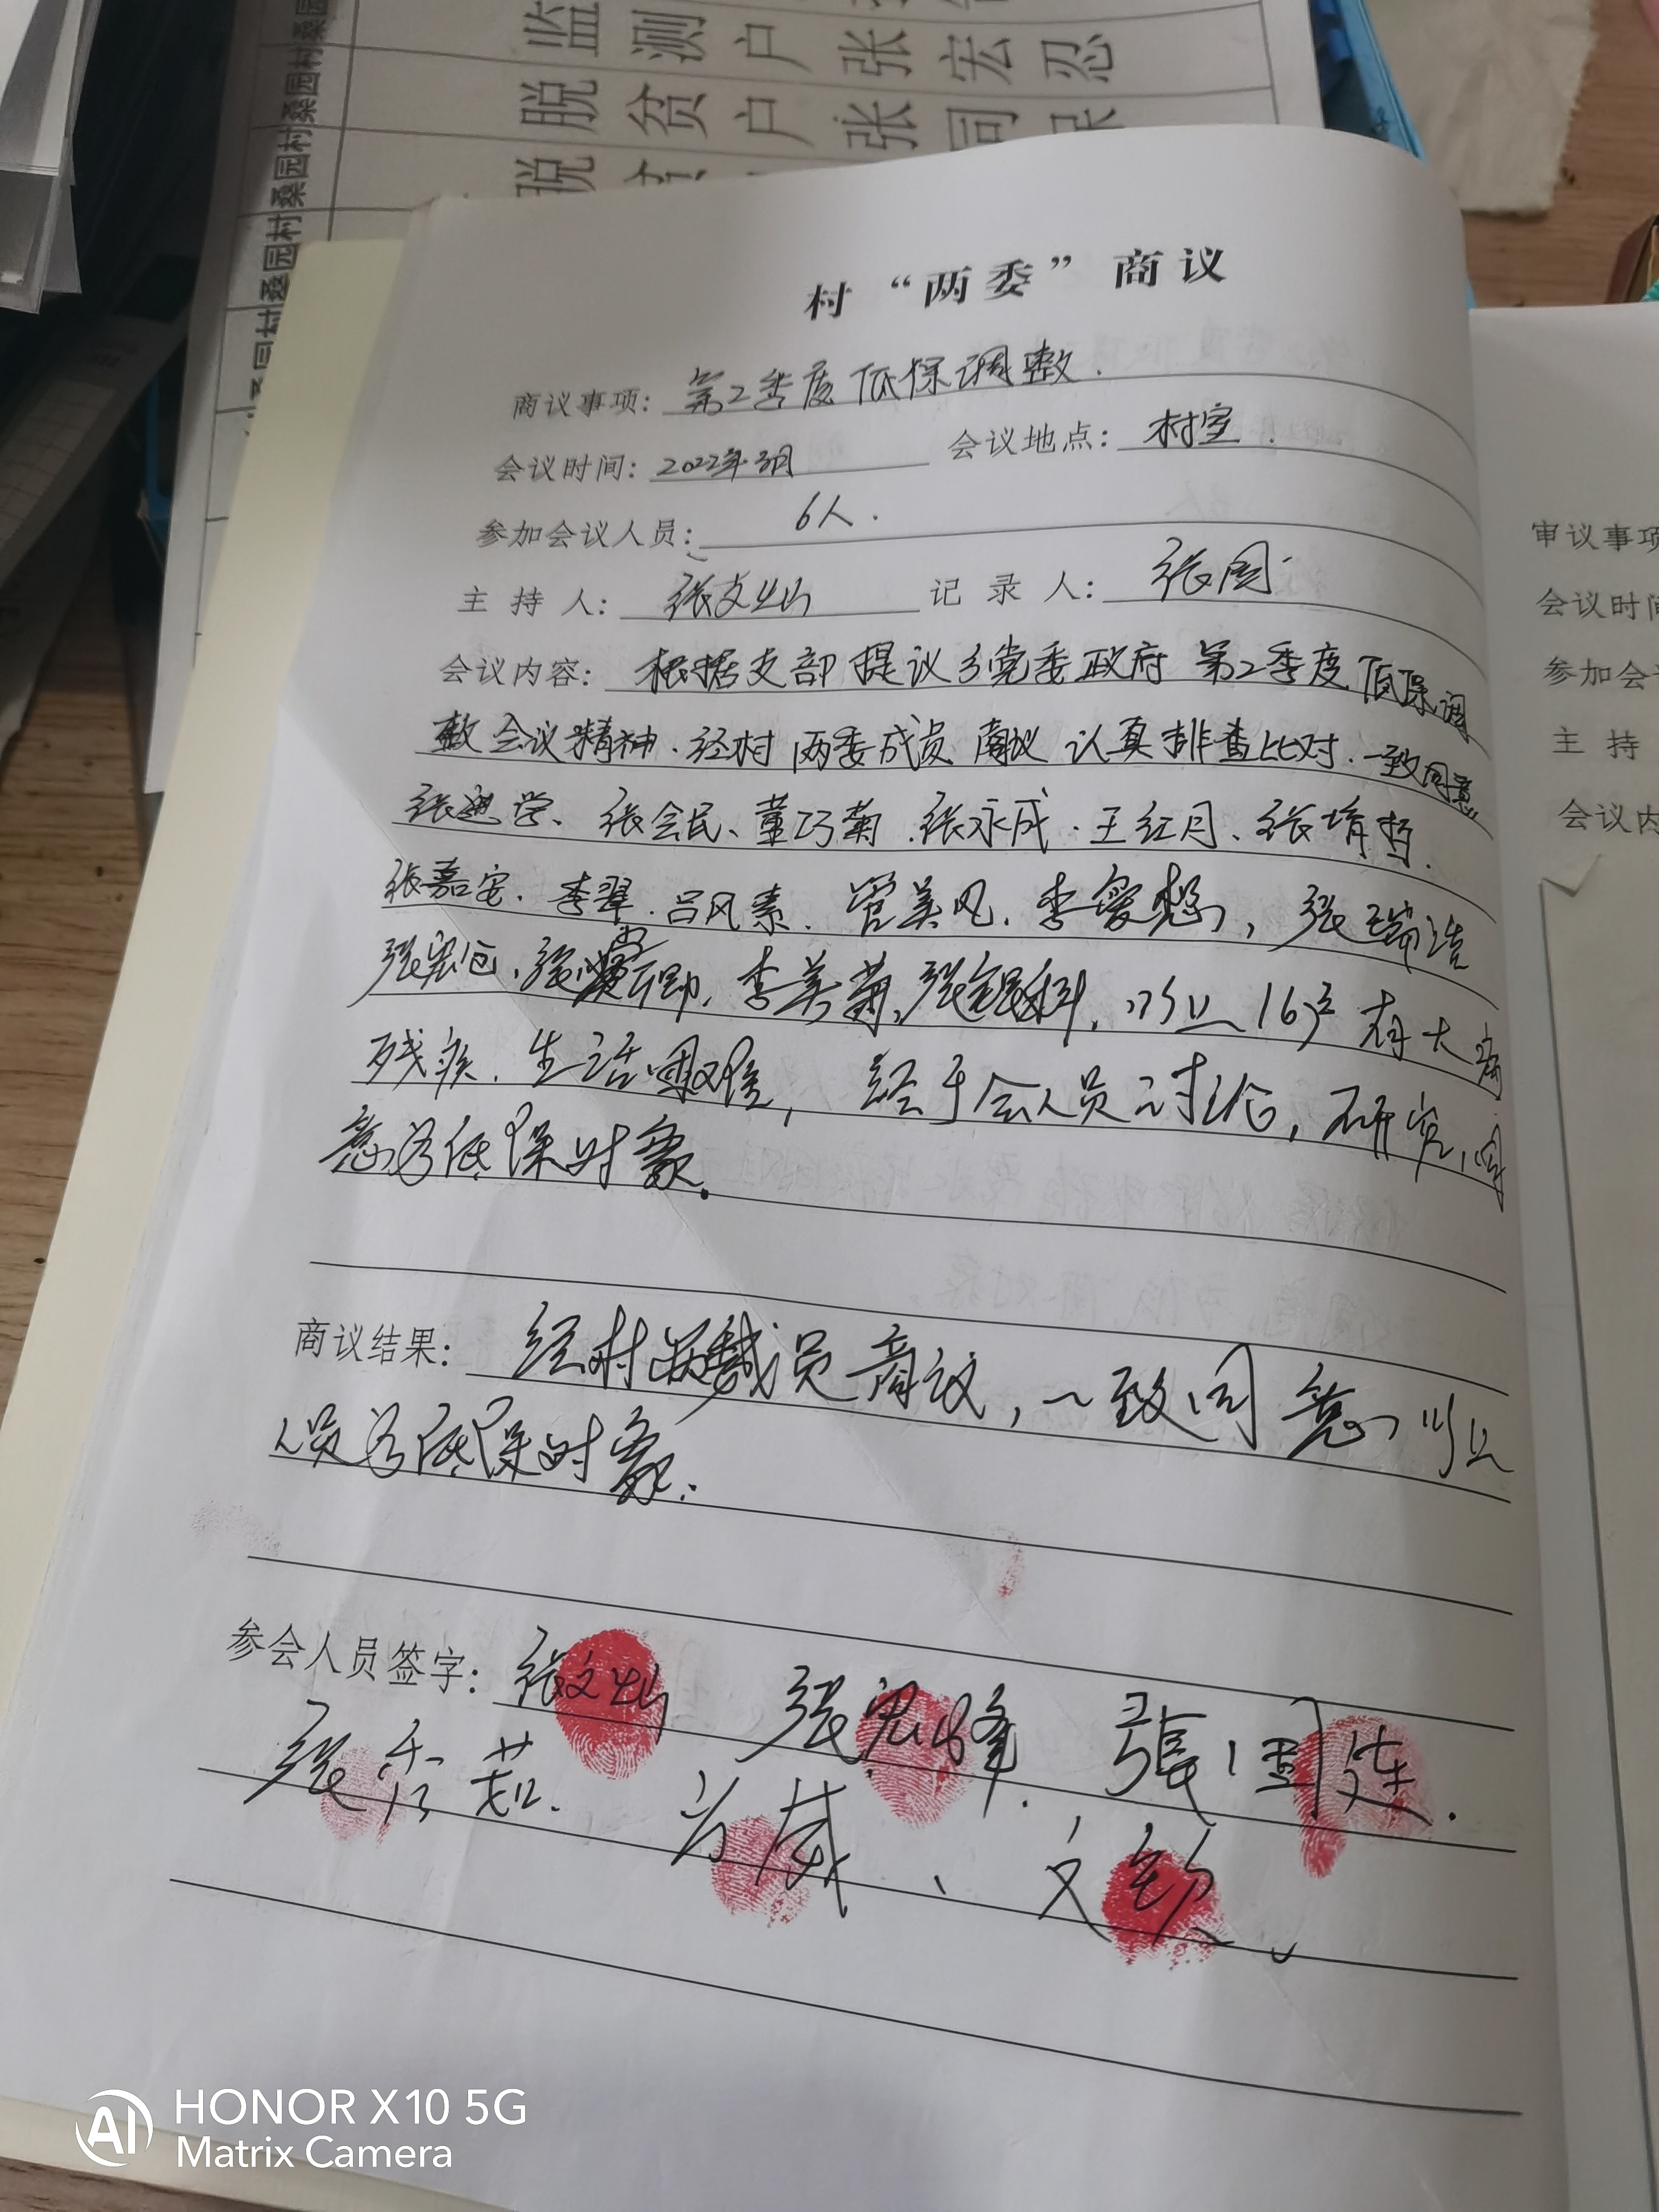 监测户张宏忍
脱贫户张同保
脱
桑园村
桑园村
桑园村
村“两委”商议
商议事项：第2季度低保调整.
会议时间：2022年3月 会议地点：村室.
参加会议人员：6人.
主持人：张文灿 记录人：张闯
会议内容：根据支部提议乡党委政府第2季度低保调
整会议精神.经村两委成员商议认真排查比对.一致同意
张 学、张会民、董巧菊.张永成.王红月、张堉哲.
张嘉宏.李翠.吕风素.管美风.李爱想，张瑞浩
张宏仓、李美菊,张银科,以上16户有大病
残疾.生活困难，经于会人员讨论，研究,同
意为低保对象.
商议结果：经村 员商议，一致同意以上
人员为低保对象.
参会人员签字：张文灿 张宏峰. 張国连.
张秀茹.
审议事项
会议时间
参加会
主持
会议内
HONOR X10 5G
Matrix Camera